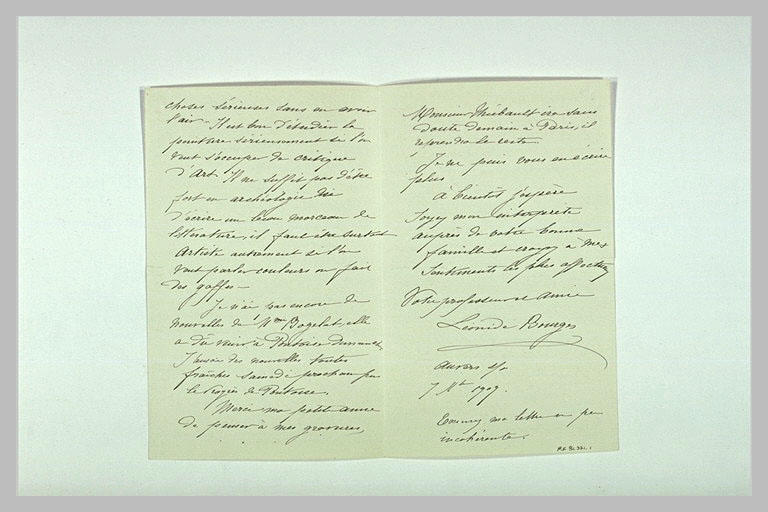 choses sérieuses sans en avoir
l'air - Il est bon d'étudier la
peinture sérieusement si l'on
veut s'occuper de critique
d'Art. Il ne suffit pas d'être
fort en archéologie
d'écrire un beau morceau de
littérature, il faut être surtout
Artiste autrement si l'on
veut parler couleurs on fait
des gaffes -
Je n'ai pas encore de
nouvelles de Mme Bogelot, elle
a dû venir à Pontoise dimanche,
J'aurai des nouvelles toutes
fraîches samedi prochain par
le Progrès de Pontoise.
Merci ma petite amie
de penser à mes gravures,
Monsieur Thiébault ira sans
doute demain à Paris, il
reprendra le reste.
Je ne puis vous en écrire
plus
à bientôt j'espère
Soyez mon interprète
auprès de votre bonne
famille et croyez à mes
sentiments les plus affectueux
Votre professeur et amie
Léonide Bourges
Auvers s/o
7 1909.
Excusez ma lettre un peu
incohérente.